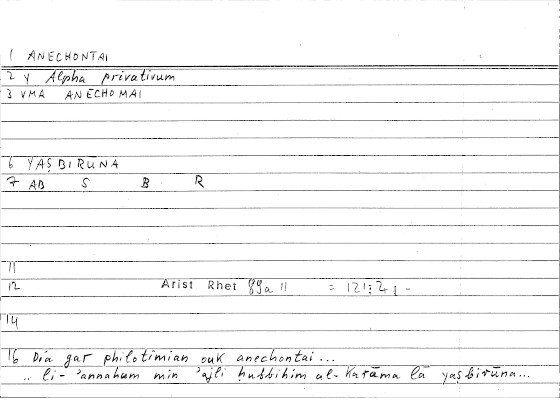 1 ANECHONTAI
2 γ Alpha privativum
3 VMA ANECHOMAI
6 YAṢBIRŪNA
7 AB Ṣ B R
11
12 Arist Rhet 89a 11 = 121:21 -
14
16 Dia gar philotimian ouk anechontai...
.. li-ʾannahum min ʾajli ḥubbihim al-karāma lā yaṣbirūna...